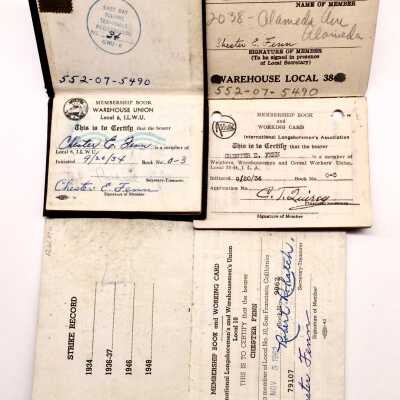 EAST BAY
36
552-07-5490
MEMBERSHIP BOOK
WAREHOUSE UNION
Local 6, I.L.W.U.
This is to Certify that the bearer
Chester E. Fenn is a member of
Local 6, I.L.W.U.
Initiated 9/20/34 Book No. 0-3
Secretary-Treasurer.
Chester E. Fenn
Signature of Member
NAME OF MEMBER
2038 - Alameda Ave
Alameda
Chester E. Fenn
SIGNATURE OF MEMBER
(To be signed in presence of
Local Secretary)
WAREHOUSE LOCAL 38
552-07-5490
MEMBERSHIP BOOK
and
WORKING CARD
International Longshoremen's Association
THIS is to Certify that the bearer
CHESTER E. FENN is a member of
Weighers, Warehousemen and Cereal Workers' Union,
Local 38-44, I. L. A.
Initiated 9/20/34 Book No. 0-3
Application No.
Signature of Member
STRIKE RECORD
1934
1936-37
1946
1948
MEMBERSHIP BOOK and WORKING CARD
International Longshoremen's and Warehousemen's Union
Local 10
THIS IS TO CERTIFY that the bearer
CHESTER FENN
is a member of Local No. 10, San Francisco, California
NOV 5
79107
Secretary-Treasurer
Chester Fenn
Signature of Member